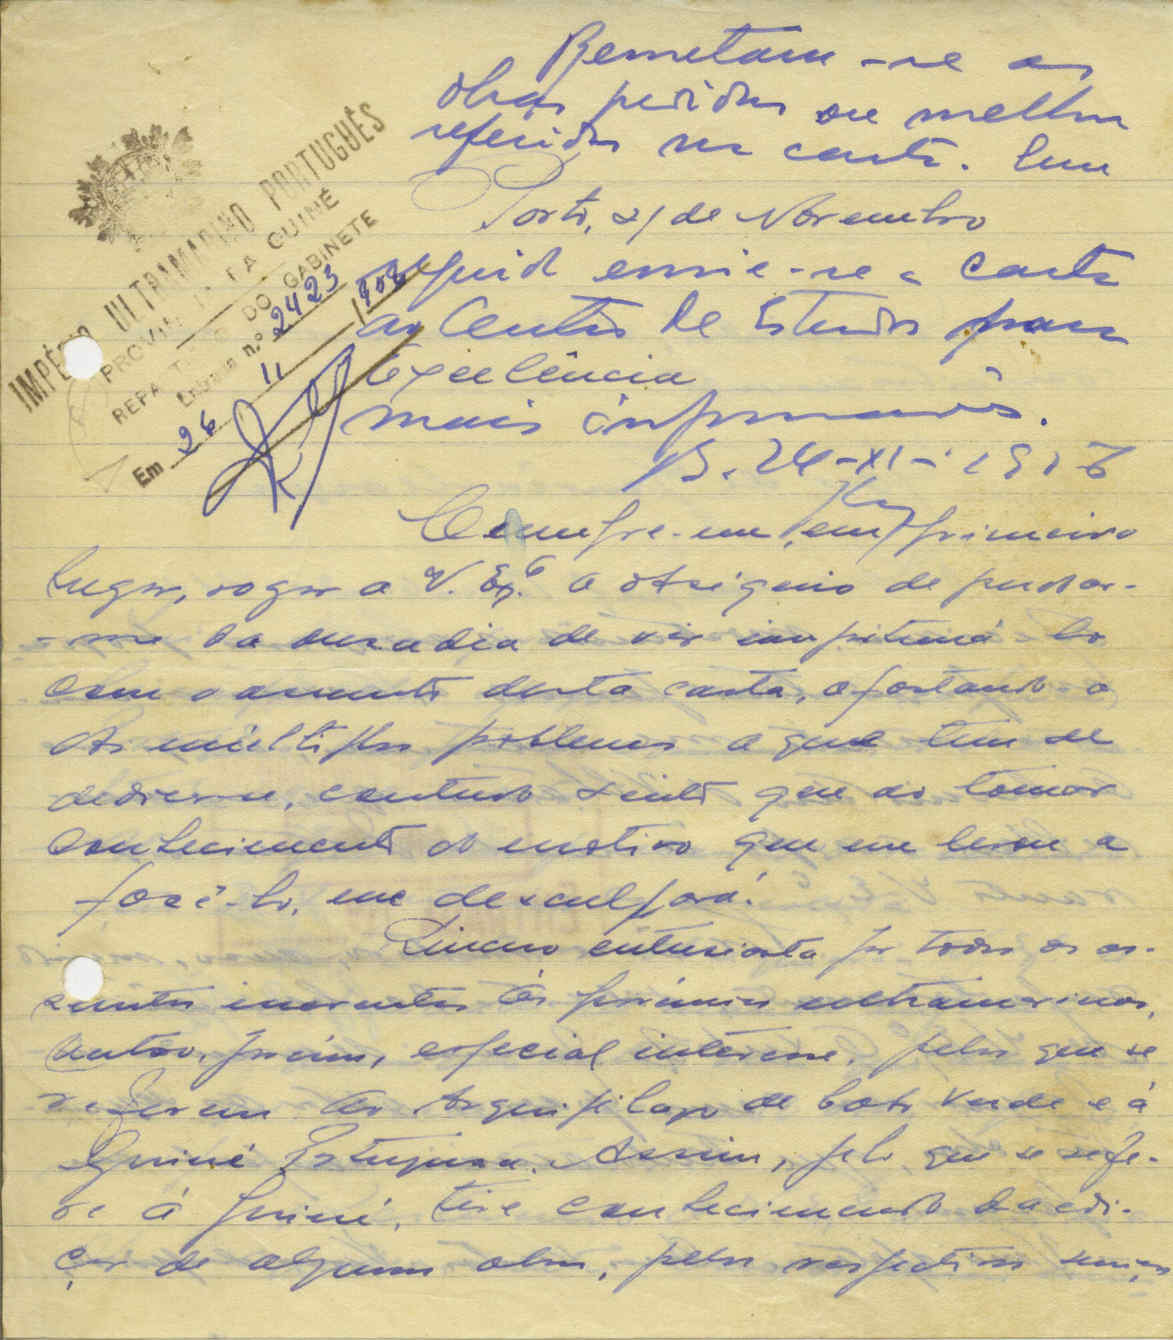 Remetam-se as
obras pedidas ou melhor
referidas na carta. Em
Porto, 21 de Novembro
seguida envie-se a carta
ao Centro de Estudos para
Excelência
mais informações.
B. 24-XI-
IMPÉRIO ULTRAMARINO PORTUGUÊS
PROVÍNCIA DA GUINÉ
REPARTIÇÃO DO GABINETE
Entrada n.º 2423
Em 26 11
Cumpre-me, em primeiro
lugar, rogar a V. Ex.ª o obséquio de perdoar-
-me da ousadia de vir importuná-lo
com o assunto desta carta, afastando-o
dos múltiplos problemas a que tem de
dedicar-se, contudo sinto que ao tomar
conhecimento do motivo que me levou a
fazê-lo, me desculpará.
Sincero entusiasta por todos os as-
suntos inerentes às províncias ultramarinas,
nutro, porém, especial interesse, pelos que se
referem ao Arquipélago de Cabo Verde e à
Guiné Portuguesa. Assim, pelo que se refe-
re à Guiné, tive conhecimento da edi-
ção de algumas obras, pelos respectivos